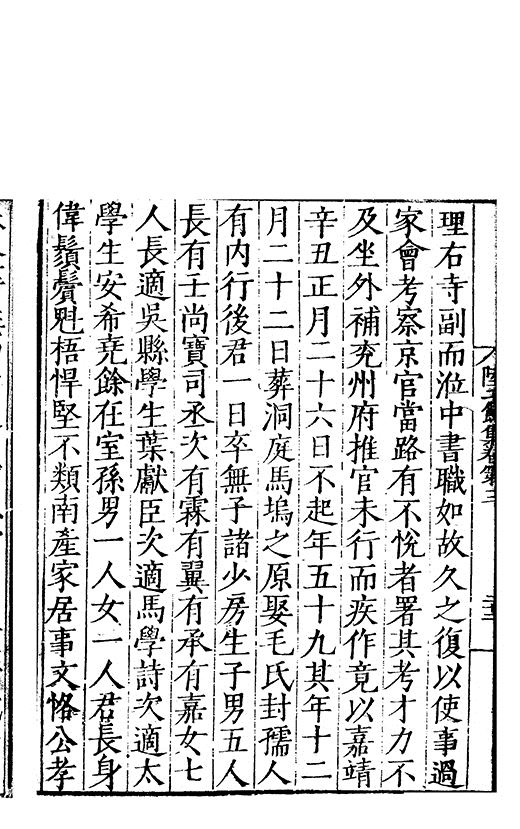 陸子餘集卷第三
理右寺副而涖中書職如故久之復以使事過
家會考察京官當路有不悅者署其考才力不
及坐外補兖州府推官未行而疾作竟以嘉靖
辛丑正月二十六日不起年五十九其年十二
月二十二日葬洞庭馬塢之原娶毛氏封孺人
有内行後君一日卒無子諸少房生子男五人
長有壬尚寶司丞次有霖有翼有承有嘉女七
人長適吳縣學生葉獻臣次適馬學詩次適太
學生安希堯餘在室孫男一人女一人君長身
偉鬚鬢魁梧悍堅不類南產家居事文恪公孝